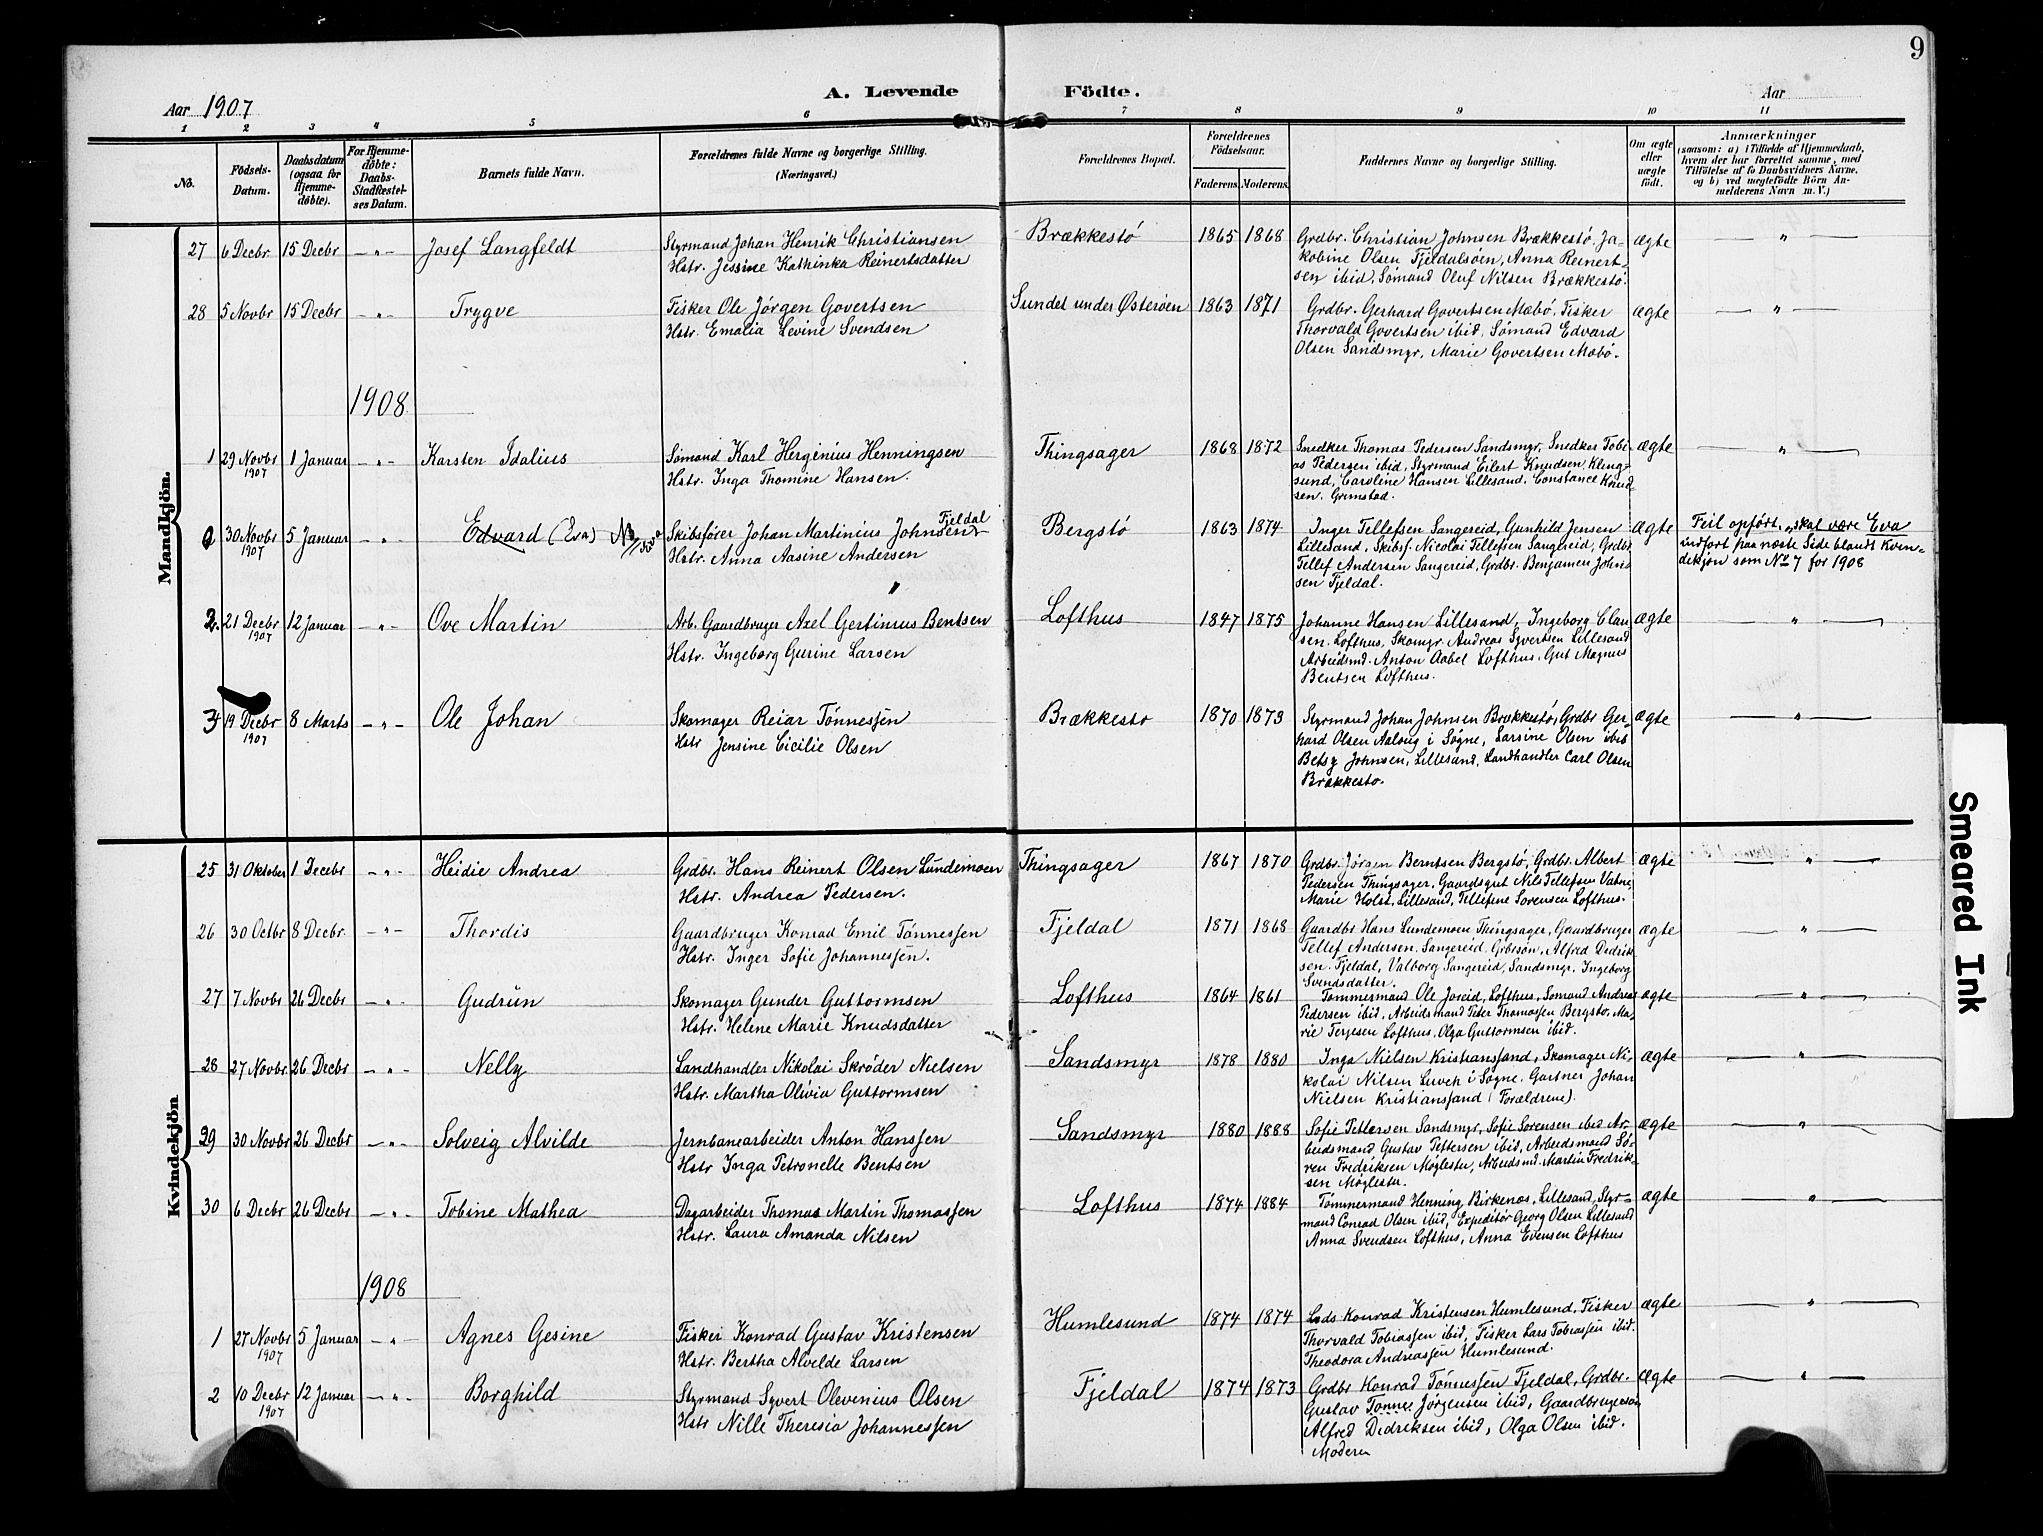 9
A. Levende Födte.
Aar 1907
Aar
1 2 3 4 5 6 7 8 9 10 11
No.
Födsels-Datum.
Daabsdatum (ogsaa for Hjemme-döbte).
For Hjemme-döbte: Daabs-Stadfæstel-ses Datum.
Barnets fulde Navn.
Forældrenes fulde Navne og borgerlige Stilling. (Næringsvei.)
Forældrenes Bopæl.
Forældrenes Födselsaar.
Faderens. Moderens.
Faddernes Navne og borgerlige Stilling.
Om ægte eller uægte født.
Anmærkninger
(saasom: a) i Tilfælde af Hjemmedaab, hvem der har forrettet samme, med Tilföielse af to Daabsvidners Navne, og b) ved uægtefödte Börn An-melderens Navn m. V.)
Mandkjön.
27 6 Decbr 15 Decbr — " — Josef Langfeldt Styrmand Johan Henrik Christiansen Brækkestö 1865 1868 Grdbr. Christian Johnsen Brækkestö, Ja- ægte — " —
Hstr. Jessine Kathinka Reinertsdatter kobine Olsen Fjeldalsöen, Anna Reinert
sen ibid, Sömand Oluf Nilsen Brækkestö.
28 5 Novbr 15 Decbr — " — Trygve Fisker Ole Jörgen Govertsen Sundet under Østeröen 1863 1871 Grdbr. Gerhard Govertsen Mæbö, Fisker ægte — " —
Hstr. Emalia Levine Svendsen Thorvald Govertsen ibid, Sömand Edvard
Olsen Sandsmyr, Marie Govertsen Mæbö.
1908
1 29 Novbr 1907 1 Januar — " — Karsten Idalius Sömand Karl Herginius Henningsen Thingsager 1868 1872 Snedker Thomas Pedersen Sandsmyr, Snedker Tobi- ægte — " —
Hstr. Inga Thomine Hansen. as Pedersen ibid, Styrmand Eilert Knudsen Kleng-
sund, Caroline Hansen Lillesand, Constance Knud-
sen. Grimstad.
30 Novbr 1907 5 Januar — " — Edvard (Eva) NB Skibsförer Johan Martinius Johnsen Fjeldal Bergstö 1863 1874 Inger Tellefsen Sangereid, Gunhild Jensen ægte Feil opfört, skal være Eva
Hstr. Anna Aasine Andersen Lillesand, Skibsf. Nicolai Tellefsen Sangereid, Grdbr. indfört paa næste Side blandt Kvin-
Tellef Andersen Sangereid, Grdbr. Benjamin John- dekjön som No 7 for 1908
sen Fjeldal.
2. 21 Decbr 1907 12 Januar — " — Ove Martin Arb. Gaardbruger Axel Gertinius Bentsen Lofthus 1847 1875 Johanne Hansen Lillesand, Ingeborg Clau- ægte — " —
Hstr. Ingeborg Gurine Larsen sen. Lofthus, Skomgr. Andreas Syvertsen Lillesand
Arbeidsmd. Anton Aabel Lofthus, Gut Magnus
Bentsen Lofthus.
3 19 Decbr 1907 8 Marts — " — Ole Johan Skomager Reiar Tönnessen Brækkestö 1870 1873 Styrmand Johan Johnsen Brækkestö, Grdbr Ger- ægte — " —
Hstr Jensine Cicilie Olsen hard Olsen Aalvig i Søgne, Larsine Olsen ibid
Betsy Johnsen, Lillesand, Landhandler Carl Olsen
Brækkestö.
Kvindekjön
25 31 Oktober 1 Decbr — " — Heidie Andrea Grdbr. Hans Reinert Olsen Lundemoen Thingsager 1867 1870 Grdbr. Jörgen Berntsen Bergstö, Grdbr. Albert ægte — " —
Hstr. Andrea Pedersen. Pedersen Thingsager, Gaardsgut Nils Tellefsen Vatne
Marie Holst, Lillesand, Tellefine Sorensen Lofthus.
26 30 Octbr 8 Decbr. — " — Thordis Gaardbruger Konrad Emil Tönnessen Fjeldal 1871 1868 Gaardbr Hans Lundemoen Thingsager, Gaardbruger ægte — " —
Hstr. Inger Sofie Johannessen. Tellef Andersen. Sangereid, Grbesön, Alfred Didrik-
sen. Fjeldal, Valborg Sangereid, Sandsmyr, Ingeborg
Svendsdatter.
27 7 Novbr 26 Decbr — " — Gudrun Skomager Gunder Guttormsen Lofthus 1864 1861 Tømmermand Ole Joreid, Lofthus, Sömand Andreas ægte — " —
Hstr. Helene Marie Knudsdatter Pedersen ibid, Arbeidsmand Peter Thomassen Bergstø, Ma-
rie Terjesen Lofthus, Olga Guttormsen ibid.
28 27 Novbr. 26 Decbr — " — Nelly Landhandler Nikolai Skröder Nielsen Sandsmyr 1878 1880 Inga Nielsen Kristianssand, Skomager Ni- ægte — " —
Hstr. Martha Olivia Guttormsen kolai Nilsen Luveh i Søgne. Gartner Johan
Nielsen Kristianssand (Forældrene).
29 30 Novbr 26 Decbr — " — Solveig Alvilde Jernbanearbeider Anton Hanssen Sandsmyr 1880 1888 Sofie Pettersen Sandsmyr, Sofie Sorensen ibid Ar- ægte — " —
Hstr Inga Petronelle Bentsen beidsmand Gustav Pettersen ibid, Arbeidsmand Sö-
ren Fredriksen Møglestu, Arbeidsmd. Martin Fredrik-
sen Møglestu.
30 6 Decbr 26 Decbr — " — Tobine Mathea Dagarbeider Thomas Martin Thomassen Lofthus 1874 1884 Tømmermand Henning Birkenæs, Lillesand, Styr- ægte — " —
Hstr. Laura Amanda Nilsen mand Conrad Olsen ibid, Expeditör Georg Olsen Lillesand
Anna Svendsen Lofthus, Anna Evensen Lofthus
1908
1 27 Novbr 1907 5 Januar — " — Agnes Gesine Fisker Konrad Gustav Kristensen Humlesund 1874 1874 Lods Konrad Kristensen Humlesund, Fisker ægte — " —
Hstr. Bertha Alvelde Larsen Thorvald Tobiassen ibid, Fisker Lars Tobiassen ibid.
Theodora Andreassen Humlesund.
2 10 Decbr 1907 12 Januar — " — Borghild Styrmand Syvert Olevenius Olsen Fjeldal 1874 1873 Grdbr Konrad Tönnessen Fjeldal, Grdbr. ægte — " —
Hstr Nille Theresia Johannessen Gustav Tønnes Jörgensen ibid, Gaardbrugersön
Alfred Didriksen ibid, Olga Olsen ibid.
Moderen
Smeared Ink